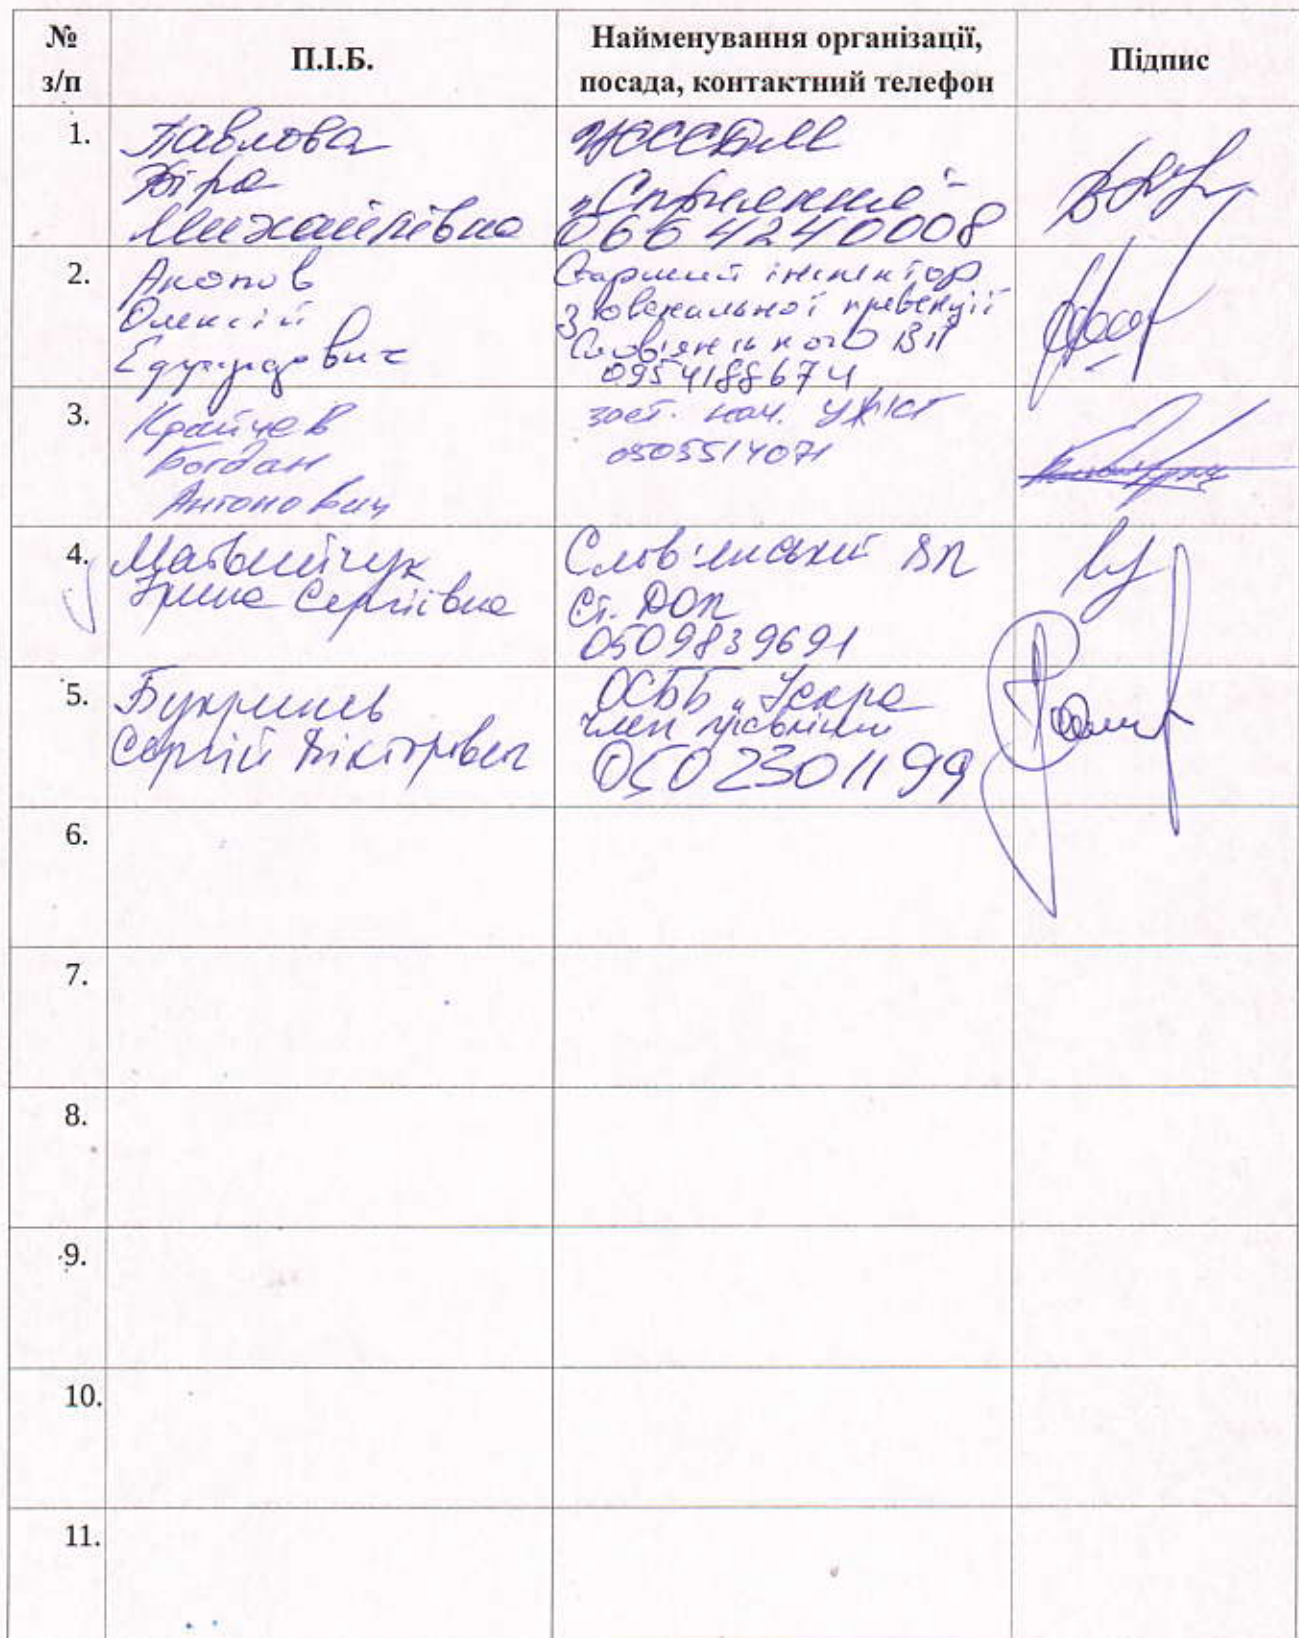 № з/п
П.І.Б.
Найменування організації,
посада, контактний телефон
Підпис
1.
Павлова
Віра
Михайлівна
"Сприяння"
066 4240008
2.
Акопов
Олексій
Едуардович
Старший інспектор
з ювенальної превенції
Слов'янського ВП
0954188674
3.
Крайчев
Богдан
Антонович
заст. нач.
0505514071
4.
Матвийчук
Ірина Сергіївна
Слов'янский ВП
Ст. ДОП
0509839691
5.
Сергій Вікторович
ОСББ "Іскра
член правління
050 2301199
6.
7.
8.
9.
10.
11.